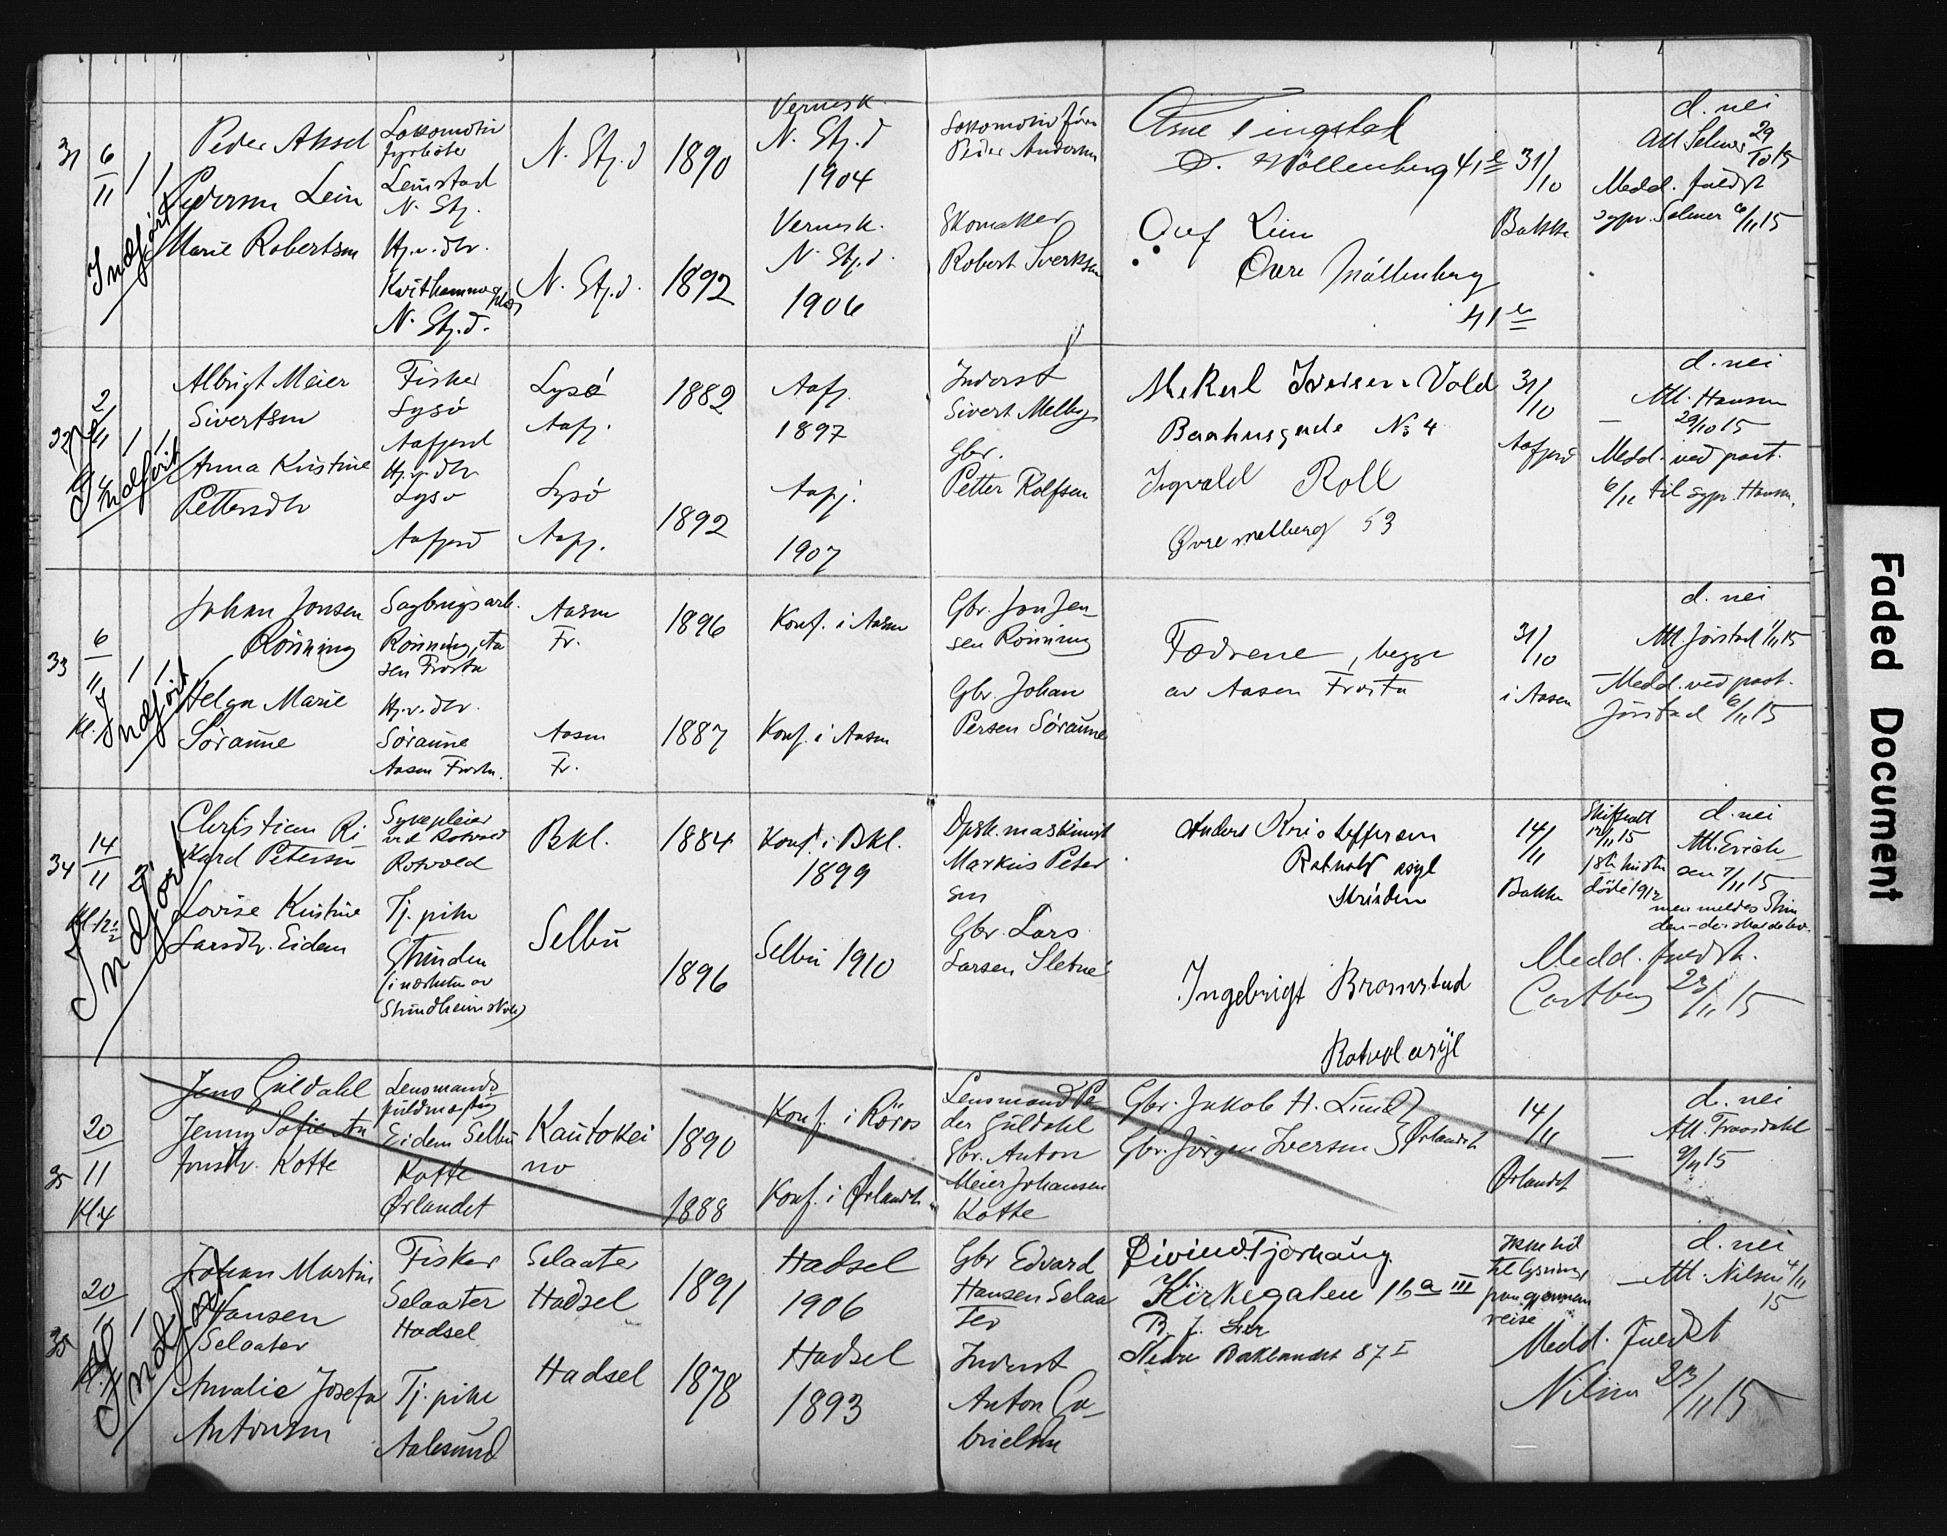 31
6
11
Indført
Peder Aksel
Pedersen Lein
Marie Robertsen
Lokomotiv
fyrbøter
Leinstad
N. Stj.
Hj. v. dtr.
Kvithammer
plds
N. Stj.d.
N. Stj.d
1890
N. Stj.d.
1892
Vernesk.
N. Stj.d
1904
Vernesk.
N. Stj.d.
1906
Lokomotivfører
Peder Andersen
Skomaker
Robert Sverksen
Arne Tingstad
Ø. Møllenberg 41 b
Oluf Lein
Øvre Møllenberg
41 b
31/10
Bakke
d. nei
Att. Selmer 29/10 15
Medd. fuldst
sgpr. Selmer 6/11 15
32
2
11
Indført
Albrigt Meier
Sivertsen
Anna Kristine
Pettersdtr
Fisker
Lysø
Aafjord
Hj. v. dtr
Lysø
Aafjord
Lysø
Aafj.
Lysø
Aafj.
1882
1892
Aafj.
1897
Aafj.
1907
Inderst
Sivert Melby
Gbr.
Petter Rolfsen
Mikal Iversen Vold
Baahusgade No 4
Ingvald Roll
Øvre mølberg 53
31/10
Aafjord
d. nei
Att. Hansen
29/10 15
Medd. ved post.
6/11 til sgpr. Hansen.
33
6
11
Kl.
Indført
Johan Jonsen
Rønning
Helga Marie
Søraune
Sagbrugsarb.
Rønning, Aa
sen Frosta
Hj. v. dtr.
Søraune
Aasen Frosta.
Aasen
Fr.
Aasen
Fr.
1896
1887
Konf. i Aasen
Konf. i Aasen
Gbr. Jon Jen-
sen Rønning
Gbr. Johan
Persen Søraune
Fædrene, begge
av Aasen Frosta
31/10
i Aasen
d. nei
Att. Jørstad 1/11 15
Medd. ved post.
Jørstad 6/11 15
34
14
11
Kl. 12 1/2
Indført
Christian Ri
kard Petersen
Lovise Kristine
Larsdtr. Eidem
Sykepleier
ved Rotvold
Rotvold
Tj. pike
Strinden
(i nærheten av
Strindheim skole)
Bkl.
Selbu
1884
1896
Konf. i Bkl.
1899
Selbu 1910
Dpsk. maskinist
Markus Peter
sen
Gbr. Lars
Larsen Sletne
Anders Kristofferson
Rotvold asyl
Strinden
Ingebrigt Bromstad
Rotvol asyl
14/11
Bakke
Skifteatt
12/11 15
1ste hustru
døde 1912
d. nei
Att. Erich-
sen 7/11 15
men meldes Strin
den
Medd. fuldst.
Castberg 23/11 15
35
20
11
Kl. 4
Jens Guldahl
Jenny Sofie An
tonsdtr. Kotte
Lensmands
fuldmægtig
Eidem Selbu
Kotte
Ørlandet
Kautokei
no
1890
1888
Konf. i Röros
Konf. i Ørlandet
Lensmand Pe
der Guldahl
Gbr. Anton
Meier Johansen
Kotte
Gbr. Jakob H. Lund
Gbr. Jørgen Iversen } Ørlandet
14/11
Ørlandet
d. nei
Att. Traasdahl
9/11 15
35
20
11
Indført
Johan Martin
Hansen
Selaater
Amalie Josefa
Antonsen
Fisker
Selaater
Hadsel
Tj. pike
Aalesund
Selaater
Hadsel
Hadsel
1891
1878
Hadsel
1906
Hadsel
1893
Gbr Edvard
Hansen Selaa
ter
Inderst
Anton Ga-
brielsen
Øivind Fjørhaug
Kirkegaten 1 b a III
B. J. Lier
Nedre Baklandet 87 I
Ikke tid
til lysning
paa gjennem
reise
d. nei
Att. Nilsen 4/11
15
Medd. fuldst
Nilsen 23/11 15
Faded Document